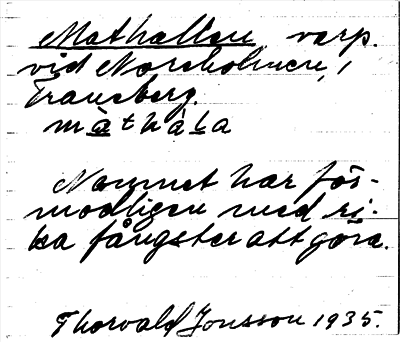 Mathallen, varp.
vid Norsholmen, i
Transberg.
màthàla
Namnet har för-
modligen med ri-
ka fångster att göra.
Thorvald Jonsson 1935.